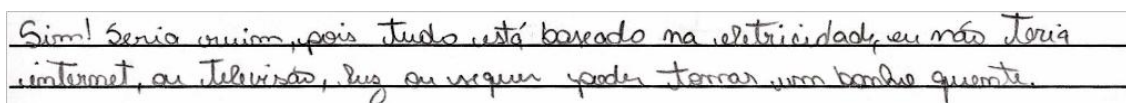 Sim! Seria ruim, pois tudo está baseado na eletricidade, eu não teria
internet, ou televisão, luz ou sequer poder tomar um banho quente.